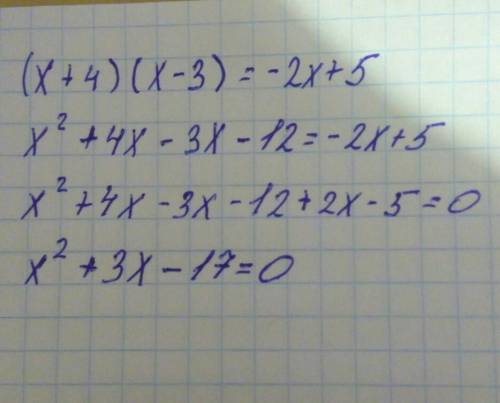 (x+4)(x-3)=-2x+5
x²+4x-3x-12=-2x+5
x²+4x-3x-12+2x-5=0
x²+3x-17=0